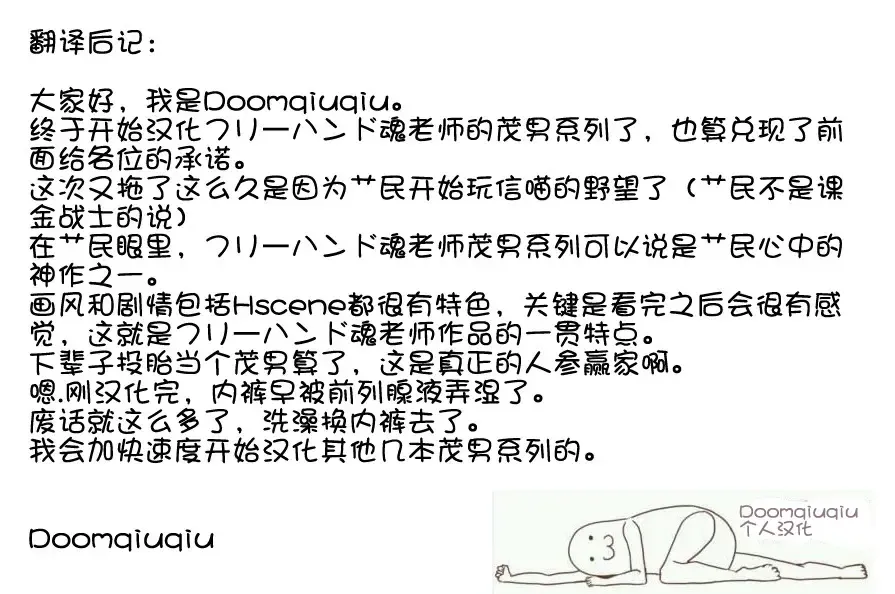 翻译后记：
大家好，我是Doomqiuqiu。
终于开始汉化フリーハンド魂老师的茂男系列了，也算兑现了前
面给各位的承诺。
这次又拖了这么久是因为艹民开始玩信喵的野望了（艹民不是课
金战士的说）
在艹民眼里，フリーハンド魂老师茂男系列可以说是艹民心中的
神作之一。
画风和剧情包括Hscene都很有特色，关键是看完之后会很有感
觉，这就是フリーハンド魂老师作品的一贯特点。
下辈子投胎当个茂男算了，这是真正的人参赢家啊。
嗯.刚汉化完，内裤早被前列腺液弄湿了。
废话就这么多了，洗澡换内裤去了。
我会加快速度开始汉化其他几本茂男系列的。
Doomqiuqiu
Doomqiuqiu
个人汉化